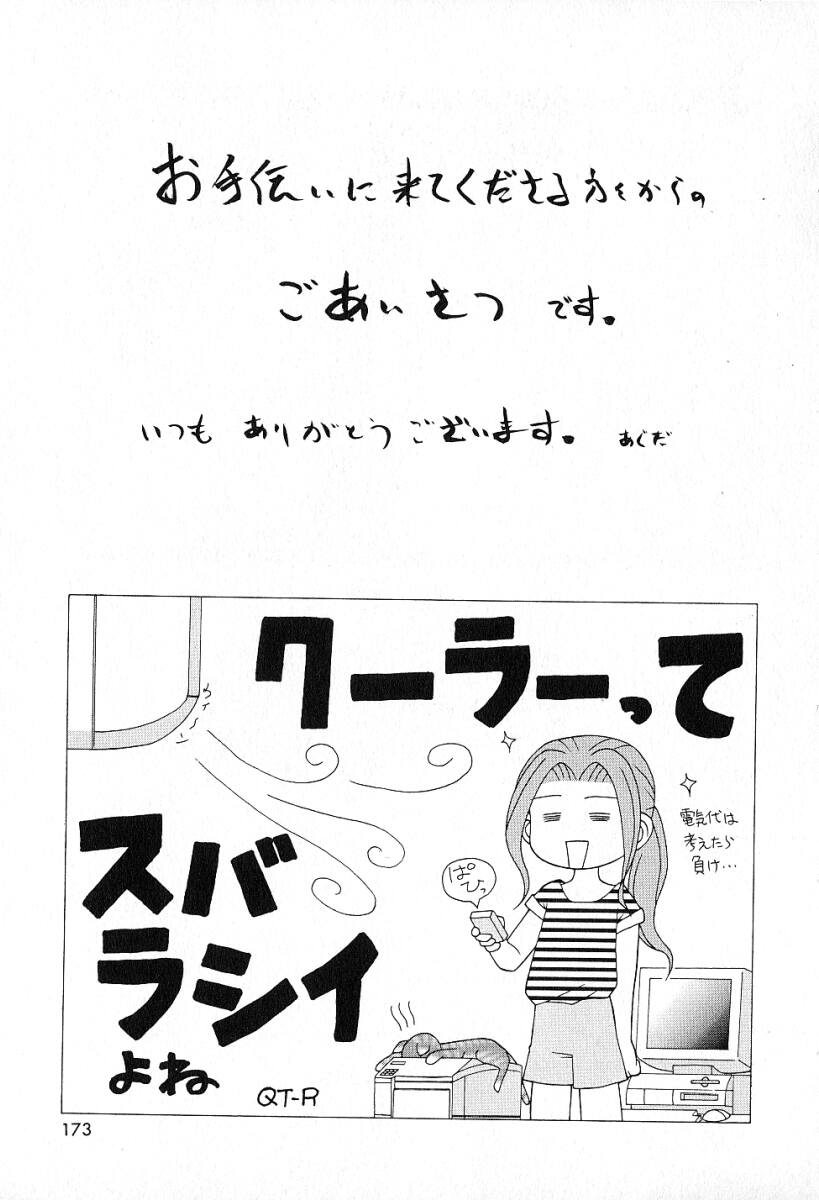 お手伝いに来てくださる方々からの
ごあいさつ です。
いつも ありがとうございます。 あぐだ
クーラーって
スバ
ラシイ
よね
電気代は
考えたら
負け…
ぱ
ひっ
QT-R
173